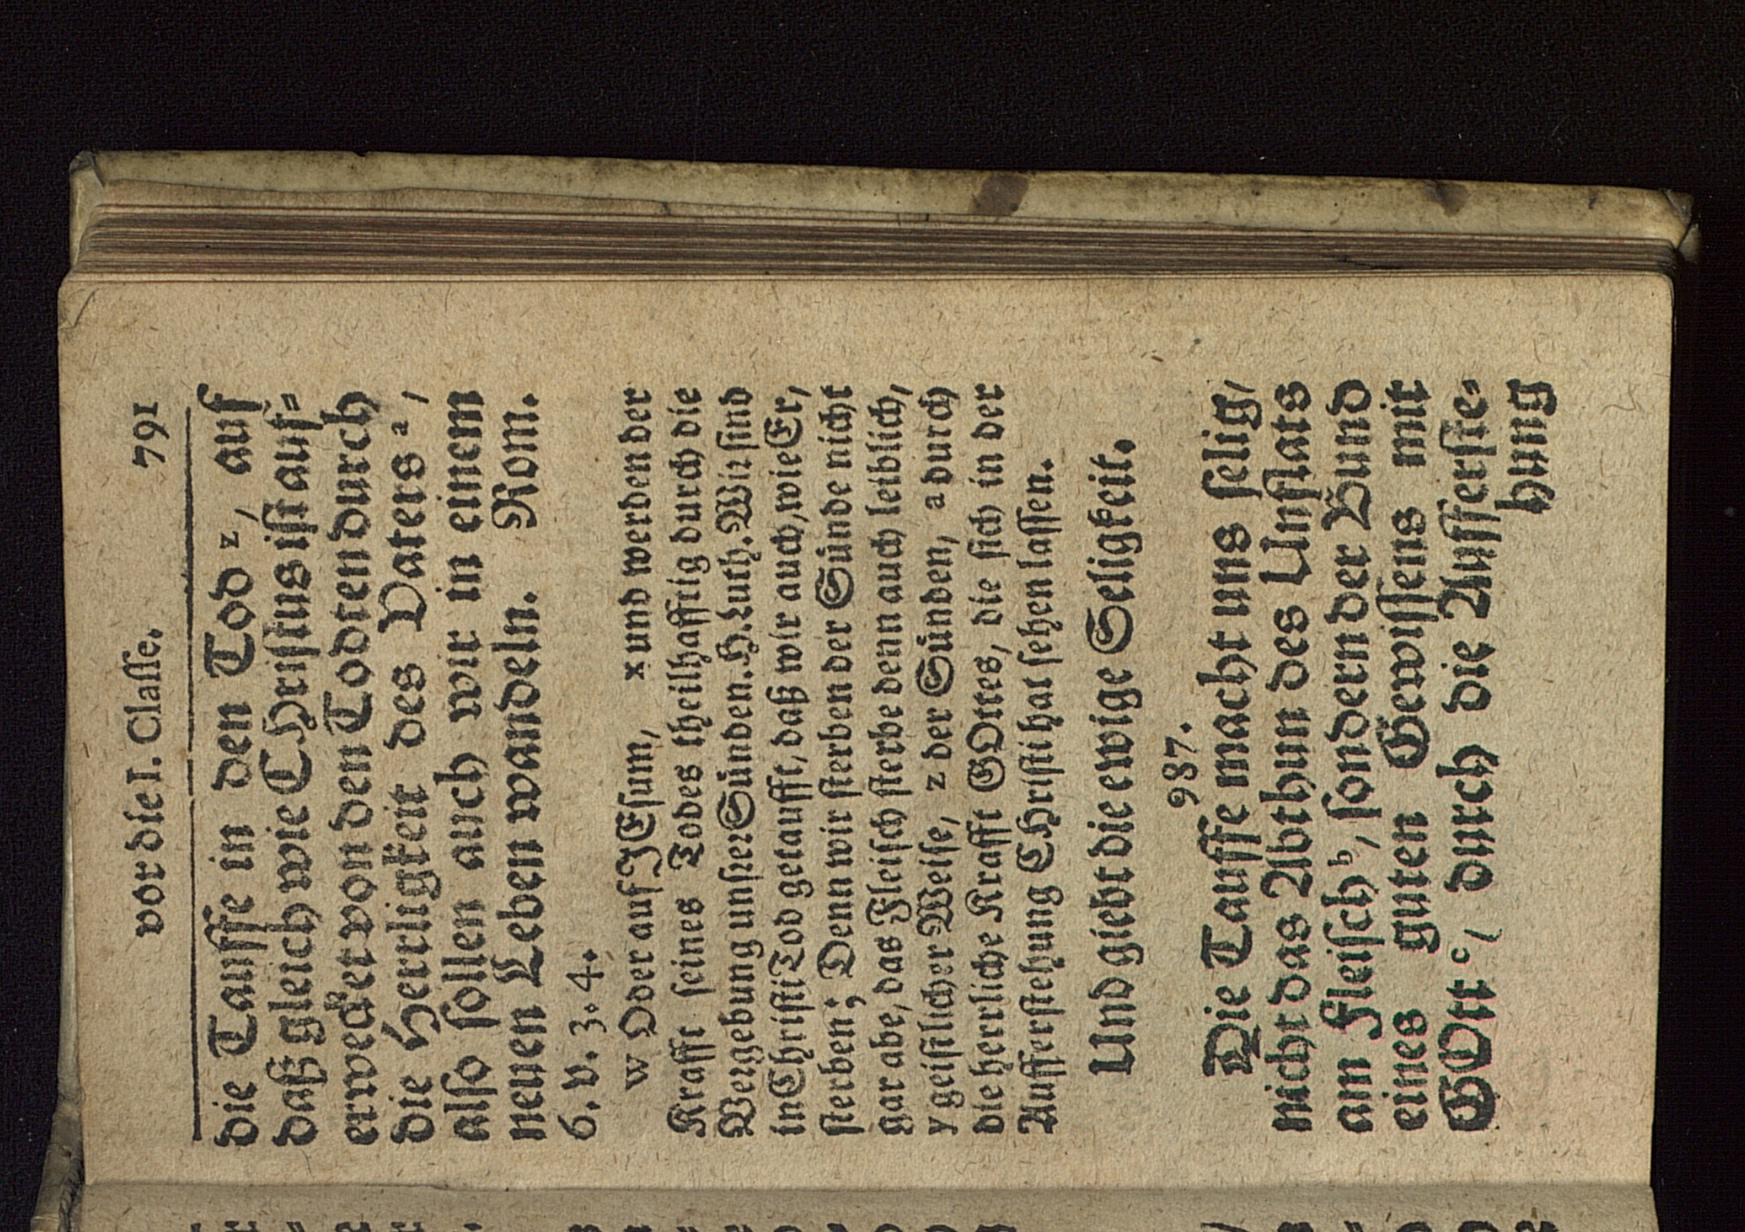 vor die I. Classe. 791
die Tauffe in den Tod z, auf
daß gleich wie CHristus ist auf-
erwecket von den Todten durch
die Herrligkeit des Vaters a,
also sollen auch wir in einem
neuen Leben wandeln. Rom.
6. v. 3. 4.
w Oder auf JEsum, x und werden der
Krafft seines Todes theilhafftig durch die
Vergebung unser Sünden. H. Luth. Wir sind
in Christi Tod getaufft, daß wir auch, wie Er,
sterben; Denn wir sterben der Sünde nicht
gar abe, das Fleisch sterbe denn auch leiblich,
y geistlicher Weise, z der Sünden, a durch
die herrliche Krafft GOttes, die sich in der
Aufferstehung CHristi hat sehen lassen.
Und giebt die ewige Seligkeit.
987.
Die Tauffe macht uns selig,
nicht das Abthun des Unflats
am Fleisch b, sondern der Bund
eines guten Gewissens mit
GOtt c, durch die Aufferste-
hung